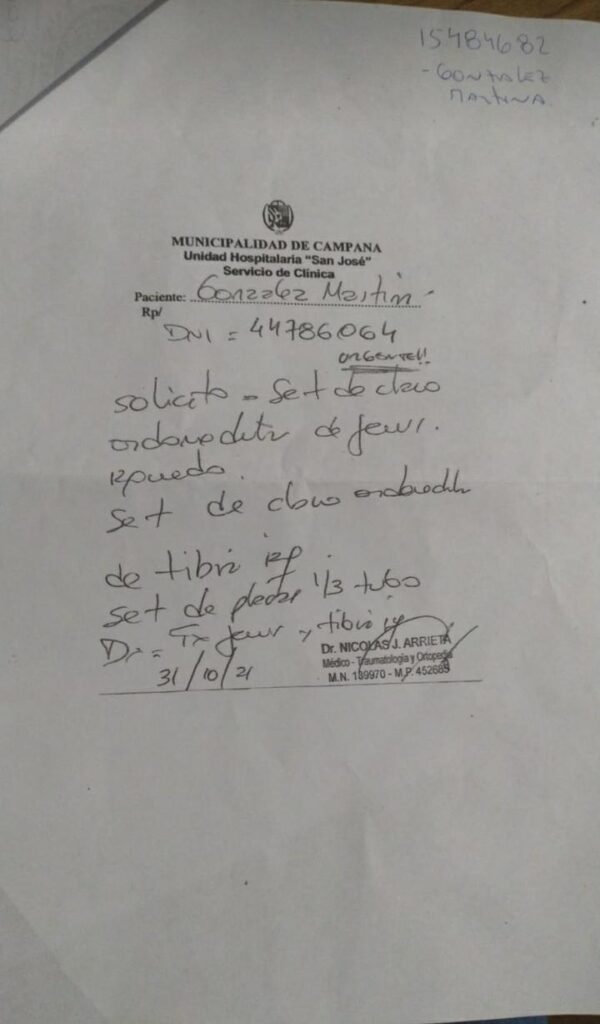 15484682
- GONZALEZ
MARTINA
MUNICIPALIDAD DE CAMPANA
Unidad Hospitalaria "San José"
Servicio de Clínica
Paciente: Gonzalez Martin -
Rp/
DNI = 44786064
URGENTE!!
solicito = Set de clavo
de femr.
izquierdo.
Set de clavo
de tibia izq.
set de placa 1/3 tubo
Dx = Fx femr y tibia izq
31/10/21
Dr. NICOLAS J. ARRIETA
Médico - Traumatología y Ortopedia
M.N. 139970 - M.P. 452685